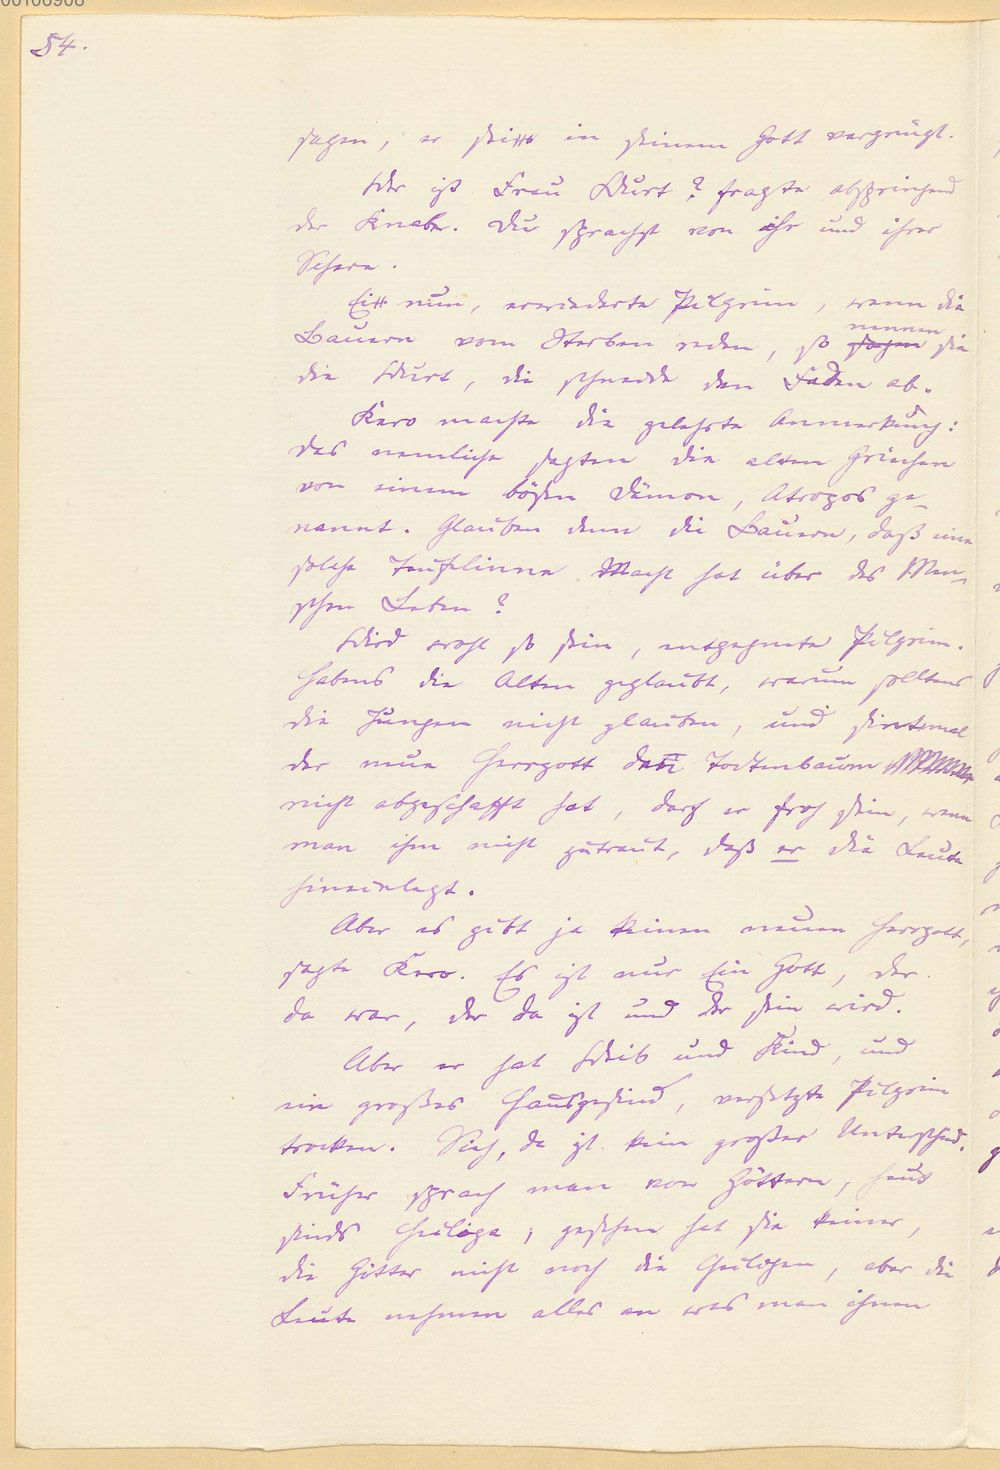 00106908
54.
sagen, er sei in seinem Gott vergnügt.
Wer ist Frau Wurt? fragte abspringend
der Knabe. Du sprachst von ihr und ihrer
Schere.
Ei nun, erwiederte Pilgrim, wenn die
Bauern vom Sterben reden, so sagen nennen sie
die Wurt, die schneide den Faden ab.
Kero machte die gelehrte Anmerkung:
das nemliche sagten die alten Griechen
von einem bösen Dämon, Atropos ge-
nannt. Glauben denn die Bauern, daß eine
solche Teufelinne Macht hat über des Men-
schen Leben?
Wird wohl so sein, entgegnete Pilgrim.
Habens die Alten geglaubt, warum solltens
die Jungen nicht glauben, und sintemal
der neue Herrgott den Todtenbaum
nicht abgeschafft hat, darf er froh sein, wenn
man ihm nicht zutraut, daß er die Leute
hineinlegt.
Aber es gibt ja keinen neuen Herrgott,
sagte Kero. Es ist nur Ein Gott, der
da war, der da ist und der sein wird.
Aber er hat Weib und Kind, und
ein großes Hausgesind, versetzte Pilgrim
trocken. Sieh, da ist kein großer Unterschied.
Früher sprach man von Göttern, heut
sinds Heilige; gesehen hat sie keiner,
die Götter nicht noch die Heiligen, aber die
Leute nehmen alles an was man ihnen